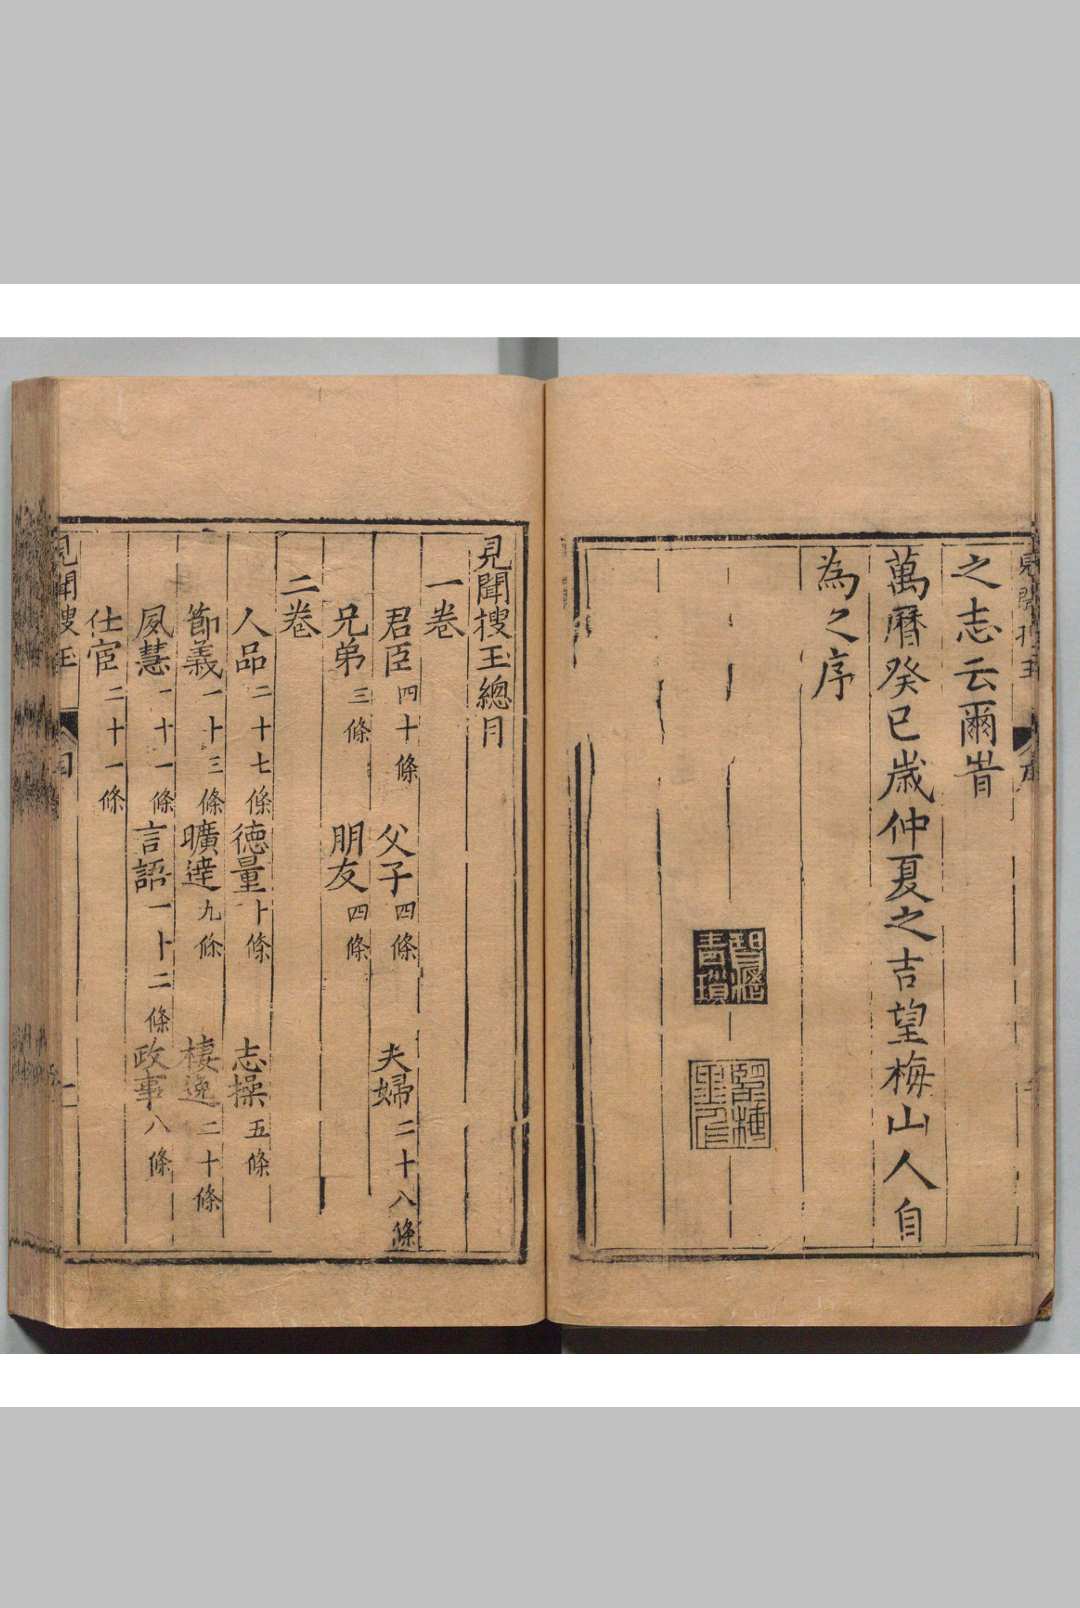 之志云爾旹
萬曆癸巳歲仲夏之吉望梅山人自
為之序
見聞搜玉總目
一卷
君臣四十條 父子四條 夫婦二十八條
兄弟三條 朋友四條
二卷
人品二十七條 德量十條 志操五條
節義一十三條 曠達九條 棲逸二十條
夙慧一十一條 言語一十二條 政事八條
仕宦二十一條
見聞搜玉
目